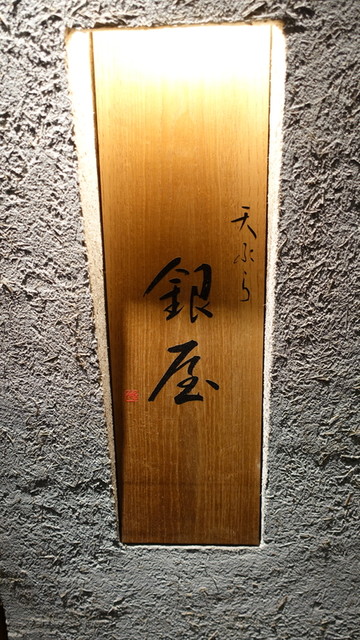 天ぷら
銀屋